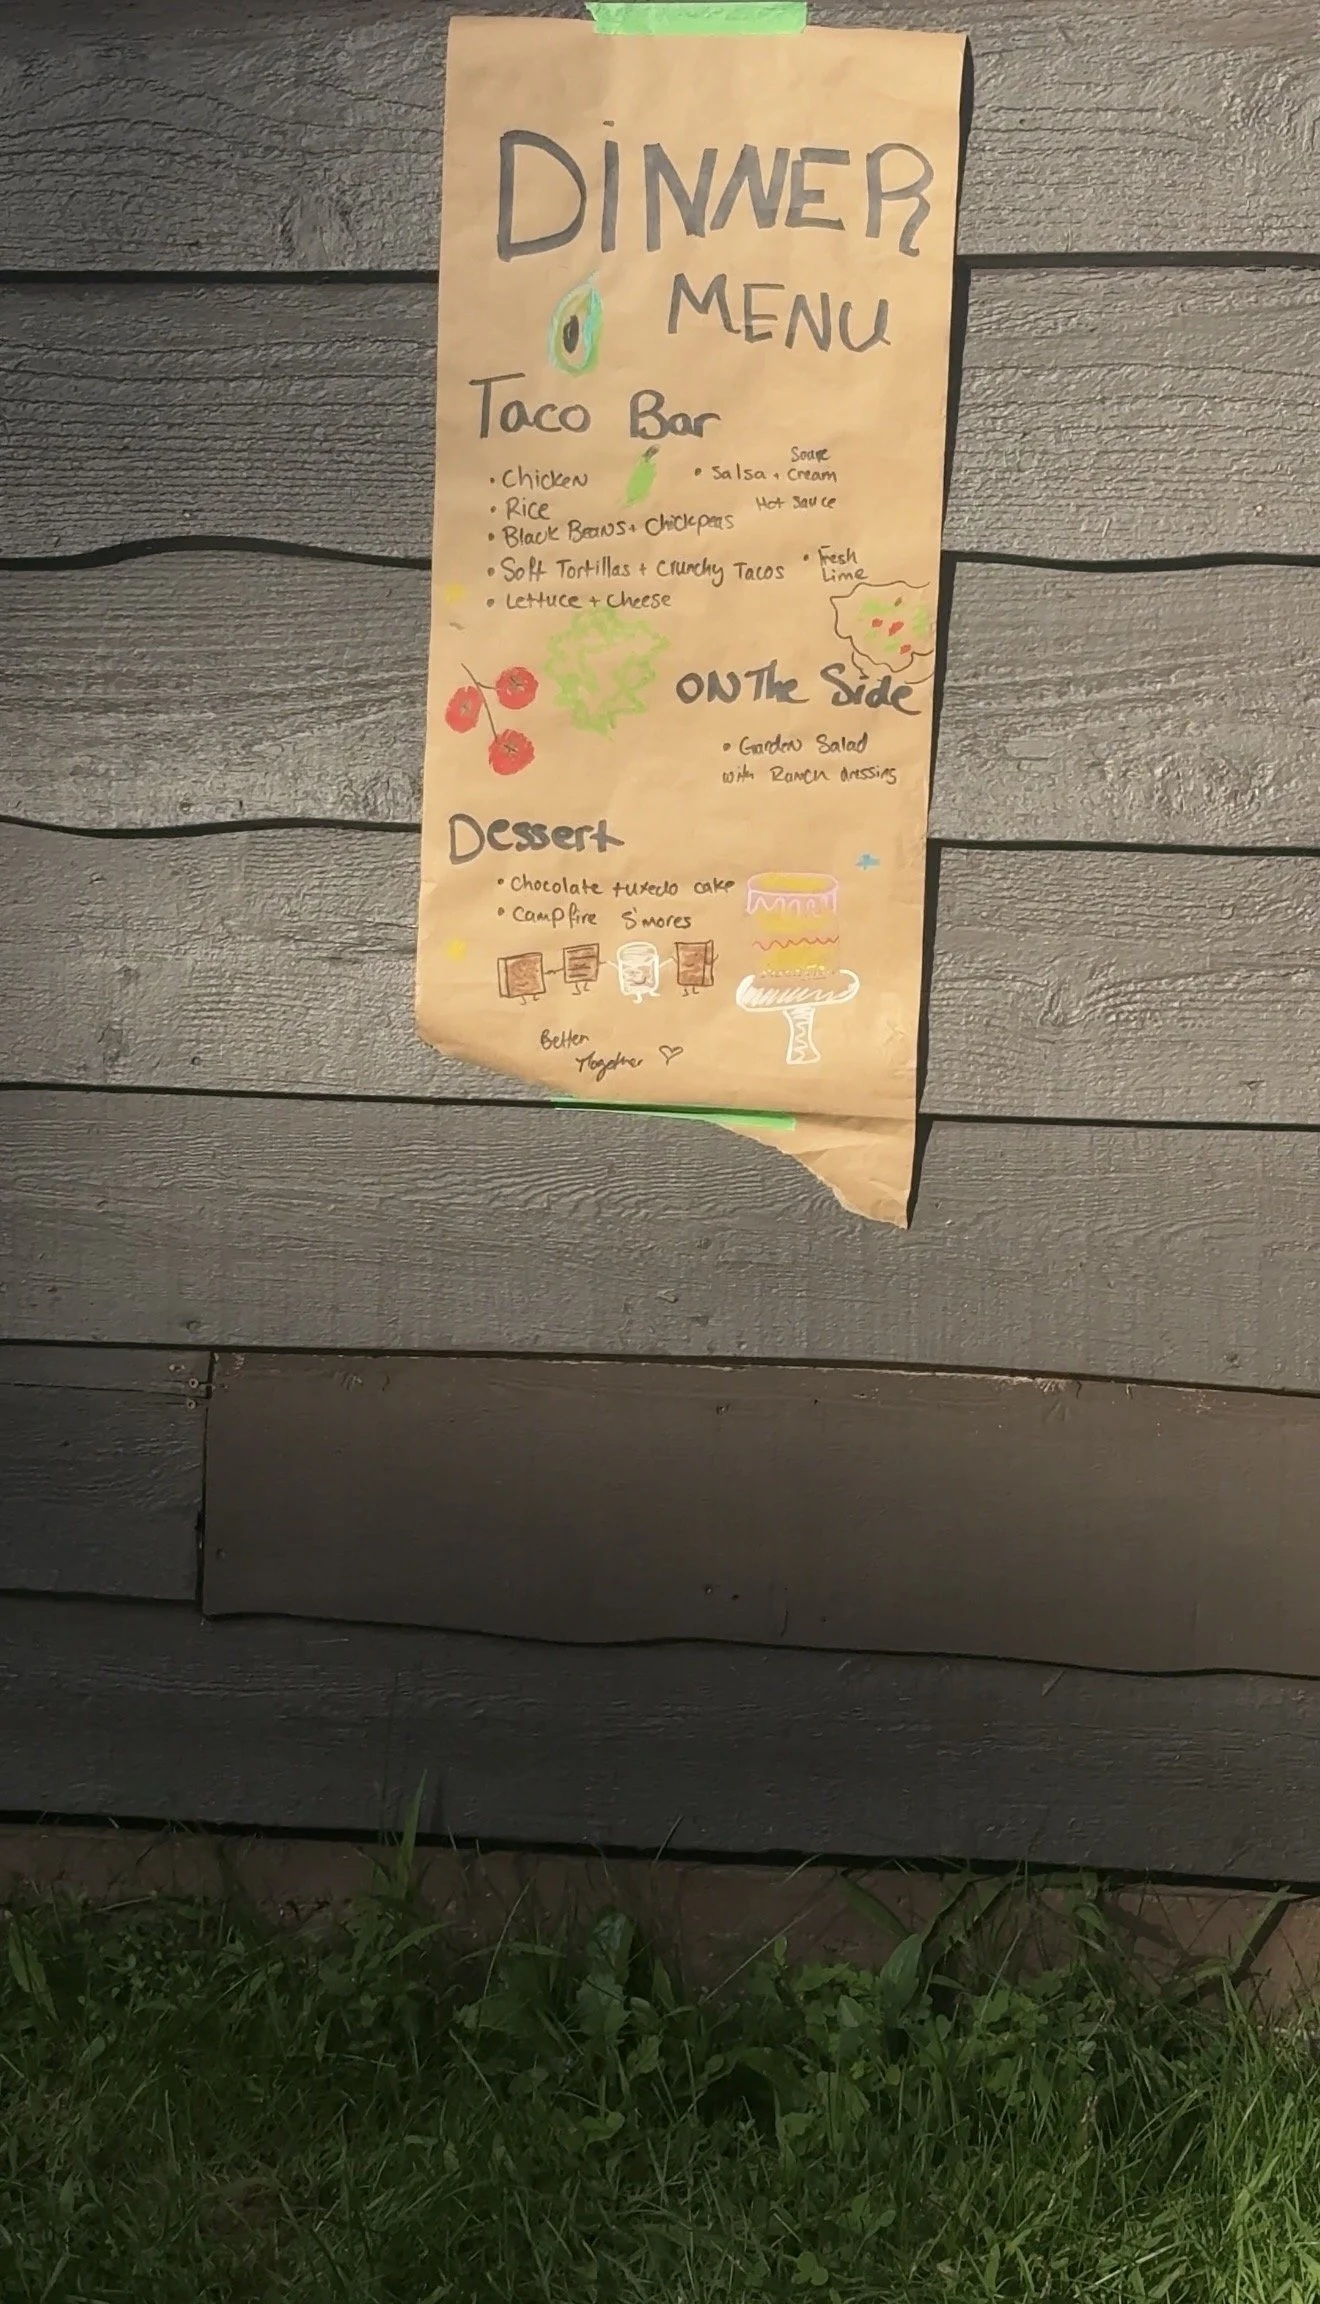 DINNER
MENU
Taco Bar
• Chicken
• Rice
• Black Beans + Chickpeas
• Soft Tortillas + Crunchy Tacos
• Lettuce + Cheese
Soure
• Salsa + Cream
Hot Sauce
• Fresh
Lime
ON The Side
• Garden Salad
with Ranch dressing
Dessert
• Chocolate tuxedo cake
• Campfire S'mores
Better
Together ♡